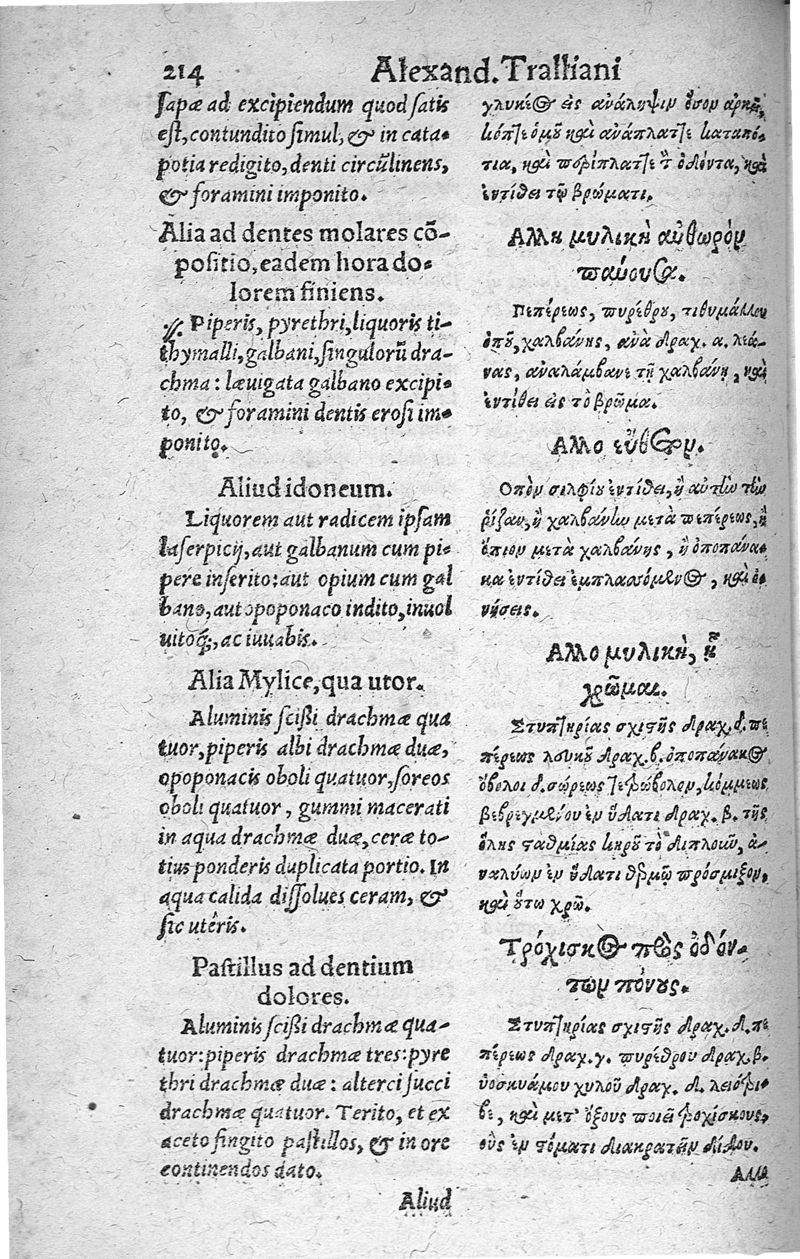 214
Alexand. Tralliani
sapæ ad excipiendum quod satis
est, contundito simul, & in cata-
potia redigito, denti circũlinens,
& foramini imponito.
Alia ad dentes molares cõ-
positio, eadem hora do-
lorem finiens.
Piperis, pyrethri, liquoris ti-
thymalli, galbani, singulorũ dra-
chma: læuigata galbano excipi-
to, & foramini dentis erosi im-
ponito.
Aliud idoneum.
Liquorem aut radicem ipsam
laserpicij, aut galbanum cum pi-
pere inserito: aut opium cum gal
bano, aut opoponaco indito, inuol
uitoq́;, ac iuuabis.
Alia Mylice, qua utor.
Aluminis scißi drachmæ qua
tuor, piperis albi drachmæ duæ,
opoponacis oboli quatuor, soreos
oboli quatuor, gummi macerati
in aqua drachmæ duæ, ceræ to-
tius ponderis duplicata portio. In
aqua calida dissolues ceram, &
sic utêris.
Pastillus ad dentium
dolores.
Aluminis scißi drachmæ qua-
tuor: piperis drachmæ tres: pyre
thri drachmæ duæ: alterci succi
drachmæ quatuor. Terito, et ex
aceto fingito pastillos, & in ore
continendos dato.
Aliud
γλυκέος εἰς ἀνάληψιν ὅσον ἀρκεῖ,
κόπτε ὁμοῦ καὶ ἀνάπλαττε καταπό-
τια, καὶ περίπλαττε τ̀ ὀδόντα, καὶ
ἐντίθει τῷ βρώματι.
Αλλη μυλικὴ αὐθωρὸν
παύουσα.
Πεπέρεως, πυρέθρου, τιθυμάλλου
ὀποῦ, χαλβάνης, ἀνὰ δραχ. α. λειά-
νας, ἀναλάμβανε τῇ χαλβάνῃ, καὶ
ἐντίθει εἰς τὸ βρῶμα.
Αλλο εὔθετον.
Οπὸν σιλφίου ἐντίθει, ἢ αὐτὴν τὴν
ῥίζαν, ἢ χαλβάνην μετὰ πεπέρεως, ἢ
ὄπιον μετὰ χαλβάνης, ἢ ὀποπάνα-
κα ἐντίθει ἐμπλασσόμενος, καὶ ὀ-
νήσεις.
Αλλο μυλικὴ, ᾗ
χρῶμαι.
Στυπτηρίας σχιστῆς δραχ. δ. πε
πέρεως λευκοῦ δραχ. β. ὀποπάνακος
ὄβολοι δ. σώρεως τετρώβολον, κόμμεως
βεβρεγμένου ἐν ὕδατι δραχ. β. τῆς
ὅλης σταθμίας κηροῦ τὸ διπλοῦν, ἀ-
ναλύων ἐν ὕδατι θερμῷ πρόσμιξον,
καὶ οὕτω χρῶ.
Τρόχισκος πρὸς ὀδόν-
των πόνους.
Στυπτηρίας σχιστῆς δραχ. δ. πε
πέρεως δραχ. γ. πυρέθρου δραχ. β.
ὑοσκυάμου χυλοῦ δραχ. δ. λειοτρί-
βει, καὶ μετ' ὄξους ποίει τροχίσκους,
οὓς ἐν στόματι διακρατεῖν δίδου.
Αλλο